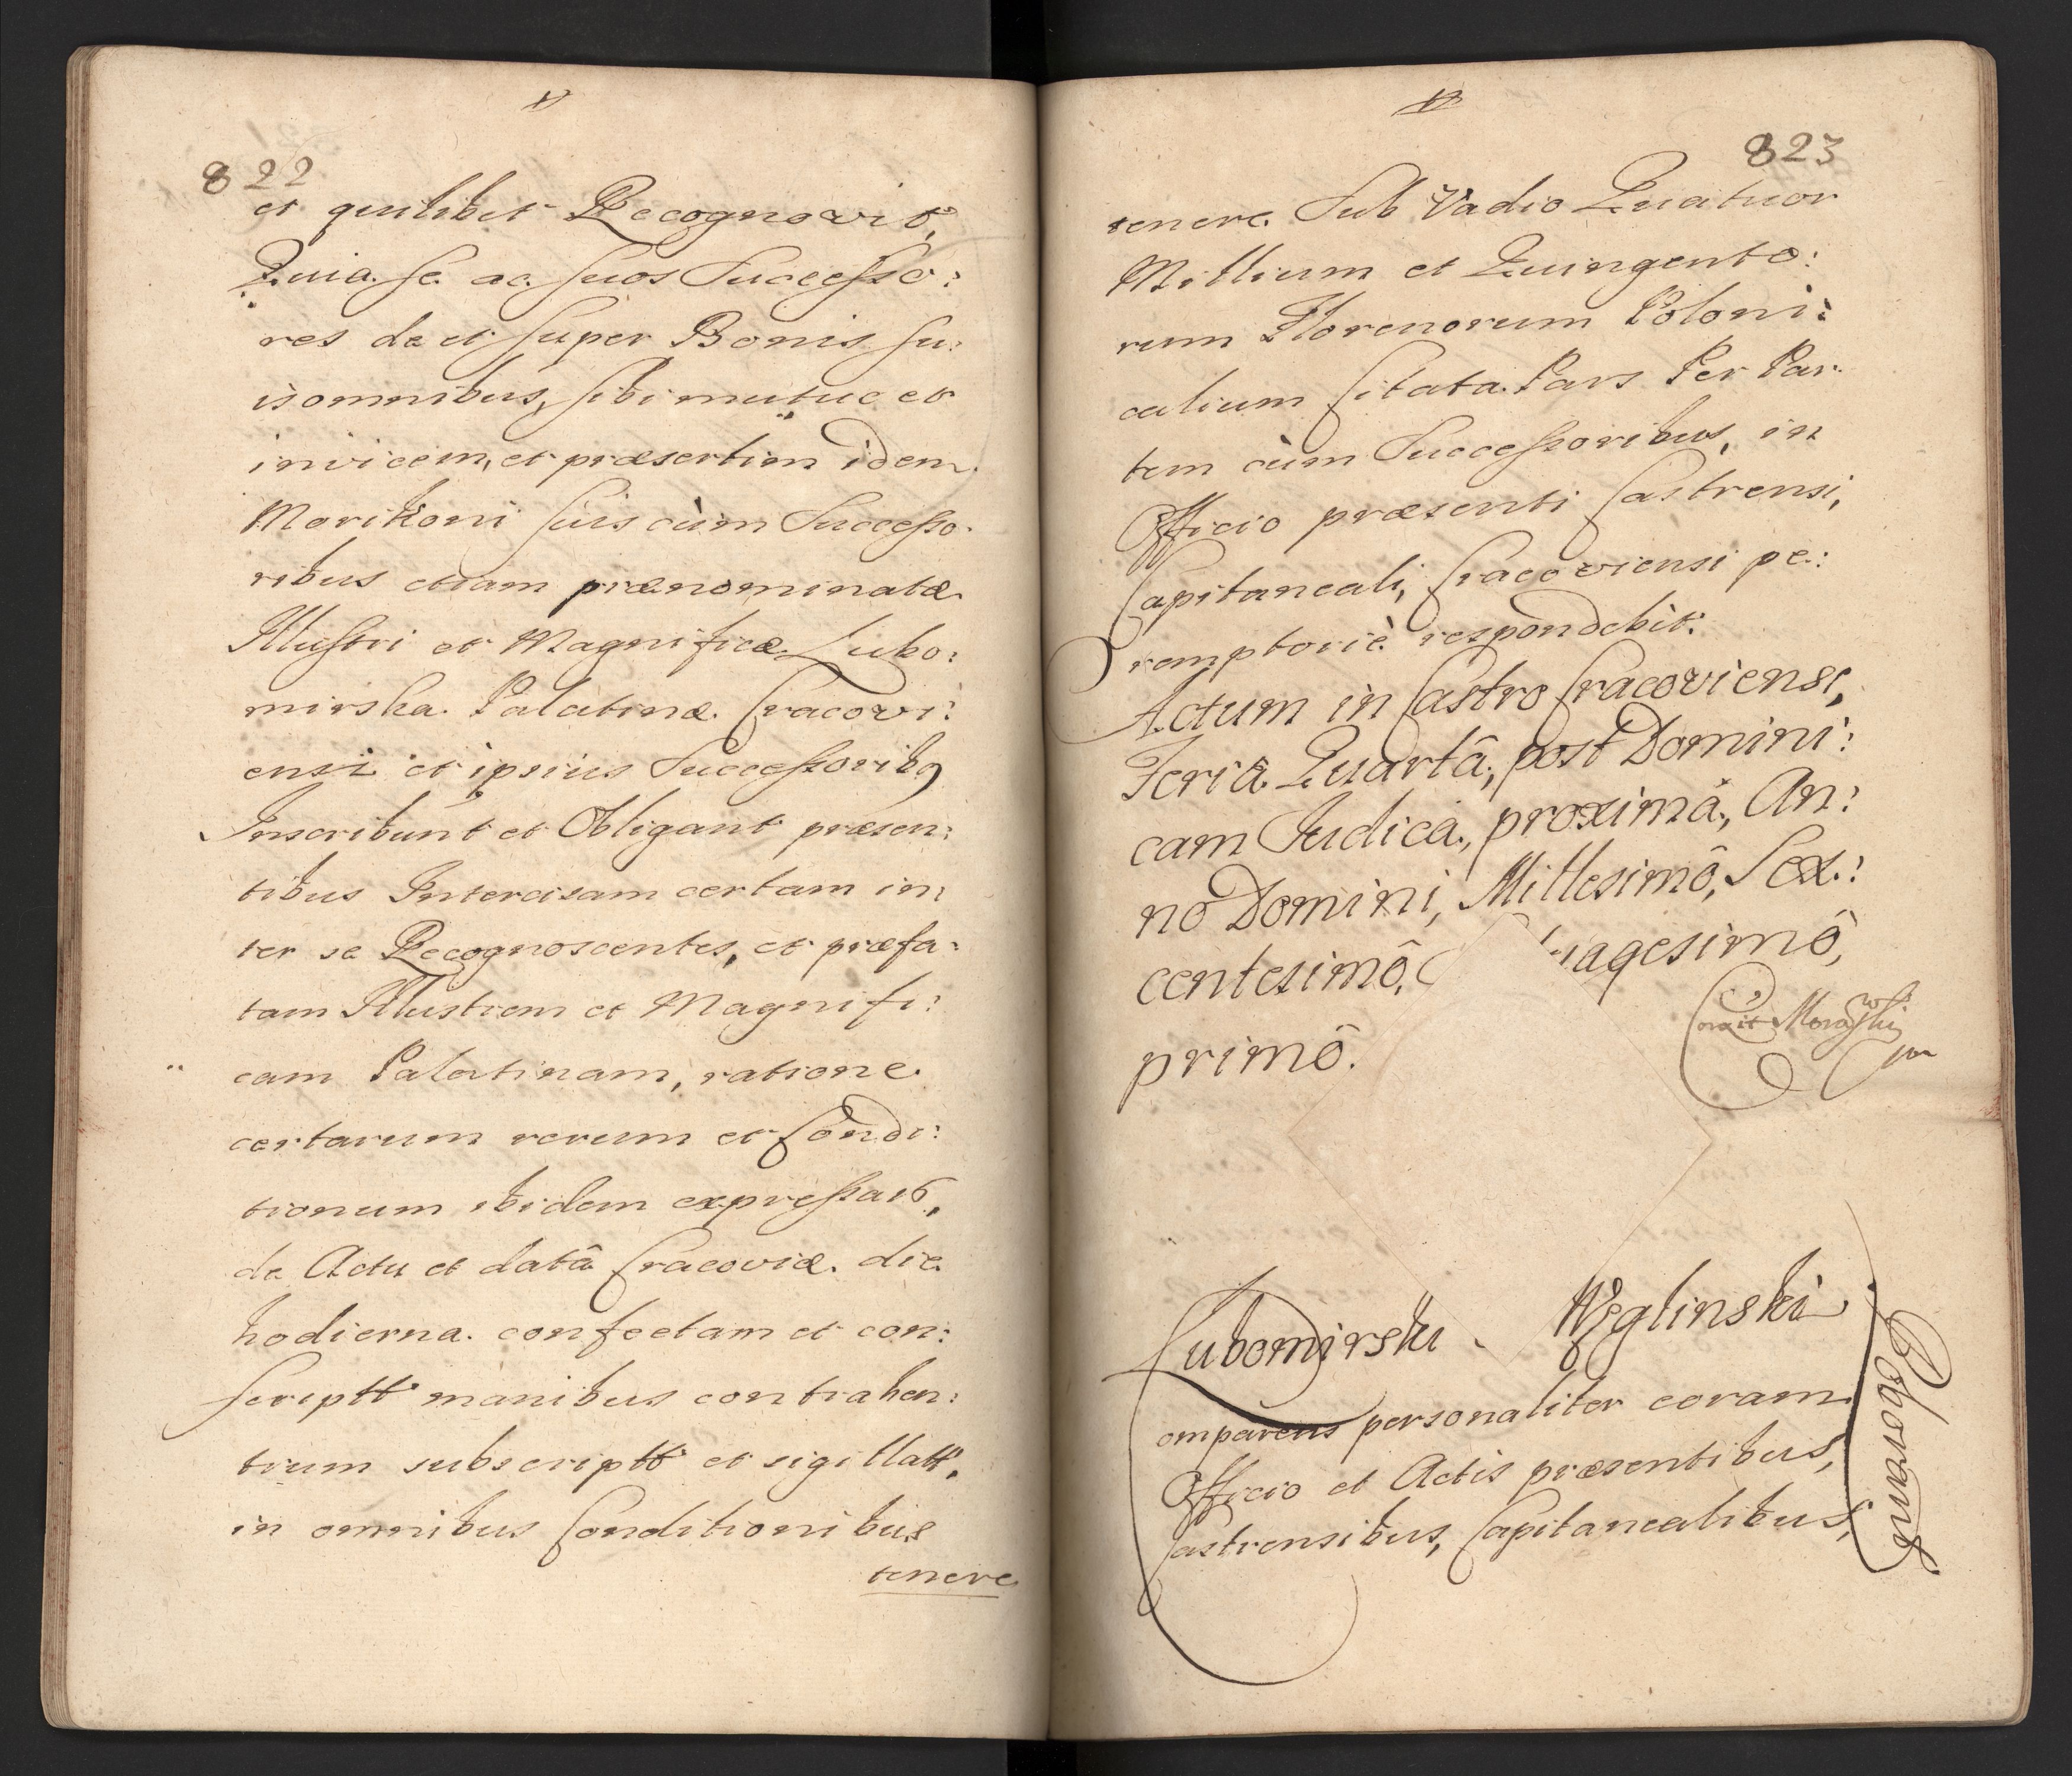 822
et quilibet Recognovit,
Quia se ac suos Successo:
res de et super Bonis su:
is omnibus, sibi mutuo et
invicem, et præsertim idem
Morikoni suis cùm Successo.
ribus etiam prænominatæ
Illustri et Magnificæ Lubo:
mirska Palatinæ Cracovi:
ensi et ipsius Successoribq
Inscribunt et Obligant præsen:
tibus Intercisam certam in:
ter se Recognoscentes, et præfa:
tam Illustrem et Magnifi:
cam Palatinam, ratione
certarum rerum et Condi:
tionum ibidem expressar,
de Actu et datâ Cracoviæ die
hodierna confectam et con:
scriptt manibus contrahen:
tium subscriptt et sigillatt,
in omnibus Conditionibus
tenere
823
tenere Sub Vadio Quatuor
Millium et Quingento:
rum Florenorum Poloni:
calium Citata Pars Per Par
tem cùm Successoribus, in
Officio præsenti Castrensi,
Capitaneali, Cracoviensi pe:
remptoriè respondebit.
Actum in Castro Cracoviensi,
Feriâ Quartâ, post Domini:
cam Judicâ, proximâ, An:
no Domini, Millesimô, Sex:
centesimô, uagesimô,
primô.
Lubomirski Węglinski
omparens personaliter coram
Officio et Actis præsentibus,
Castrensibus, Capitanealibus,
Oblovans